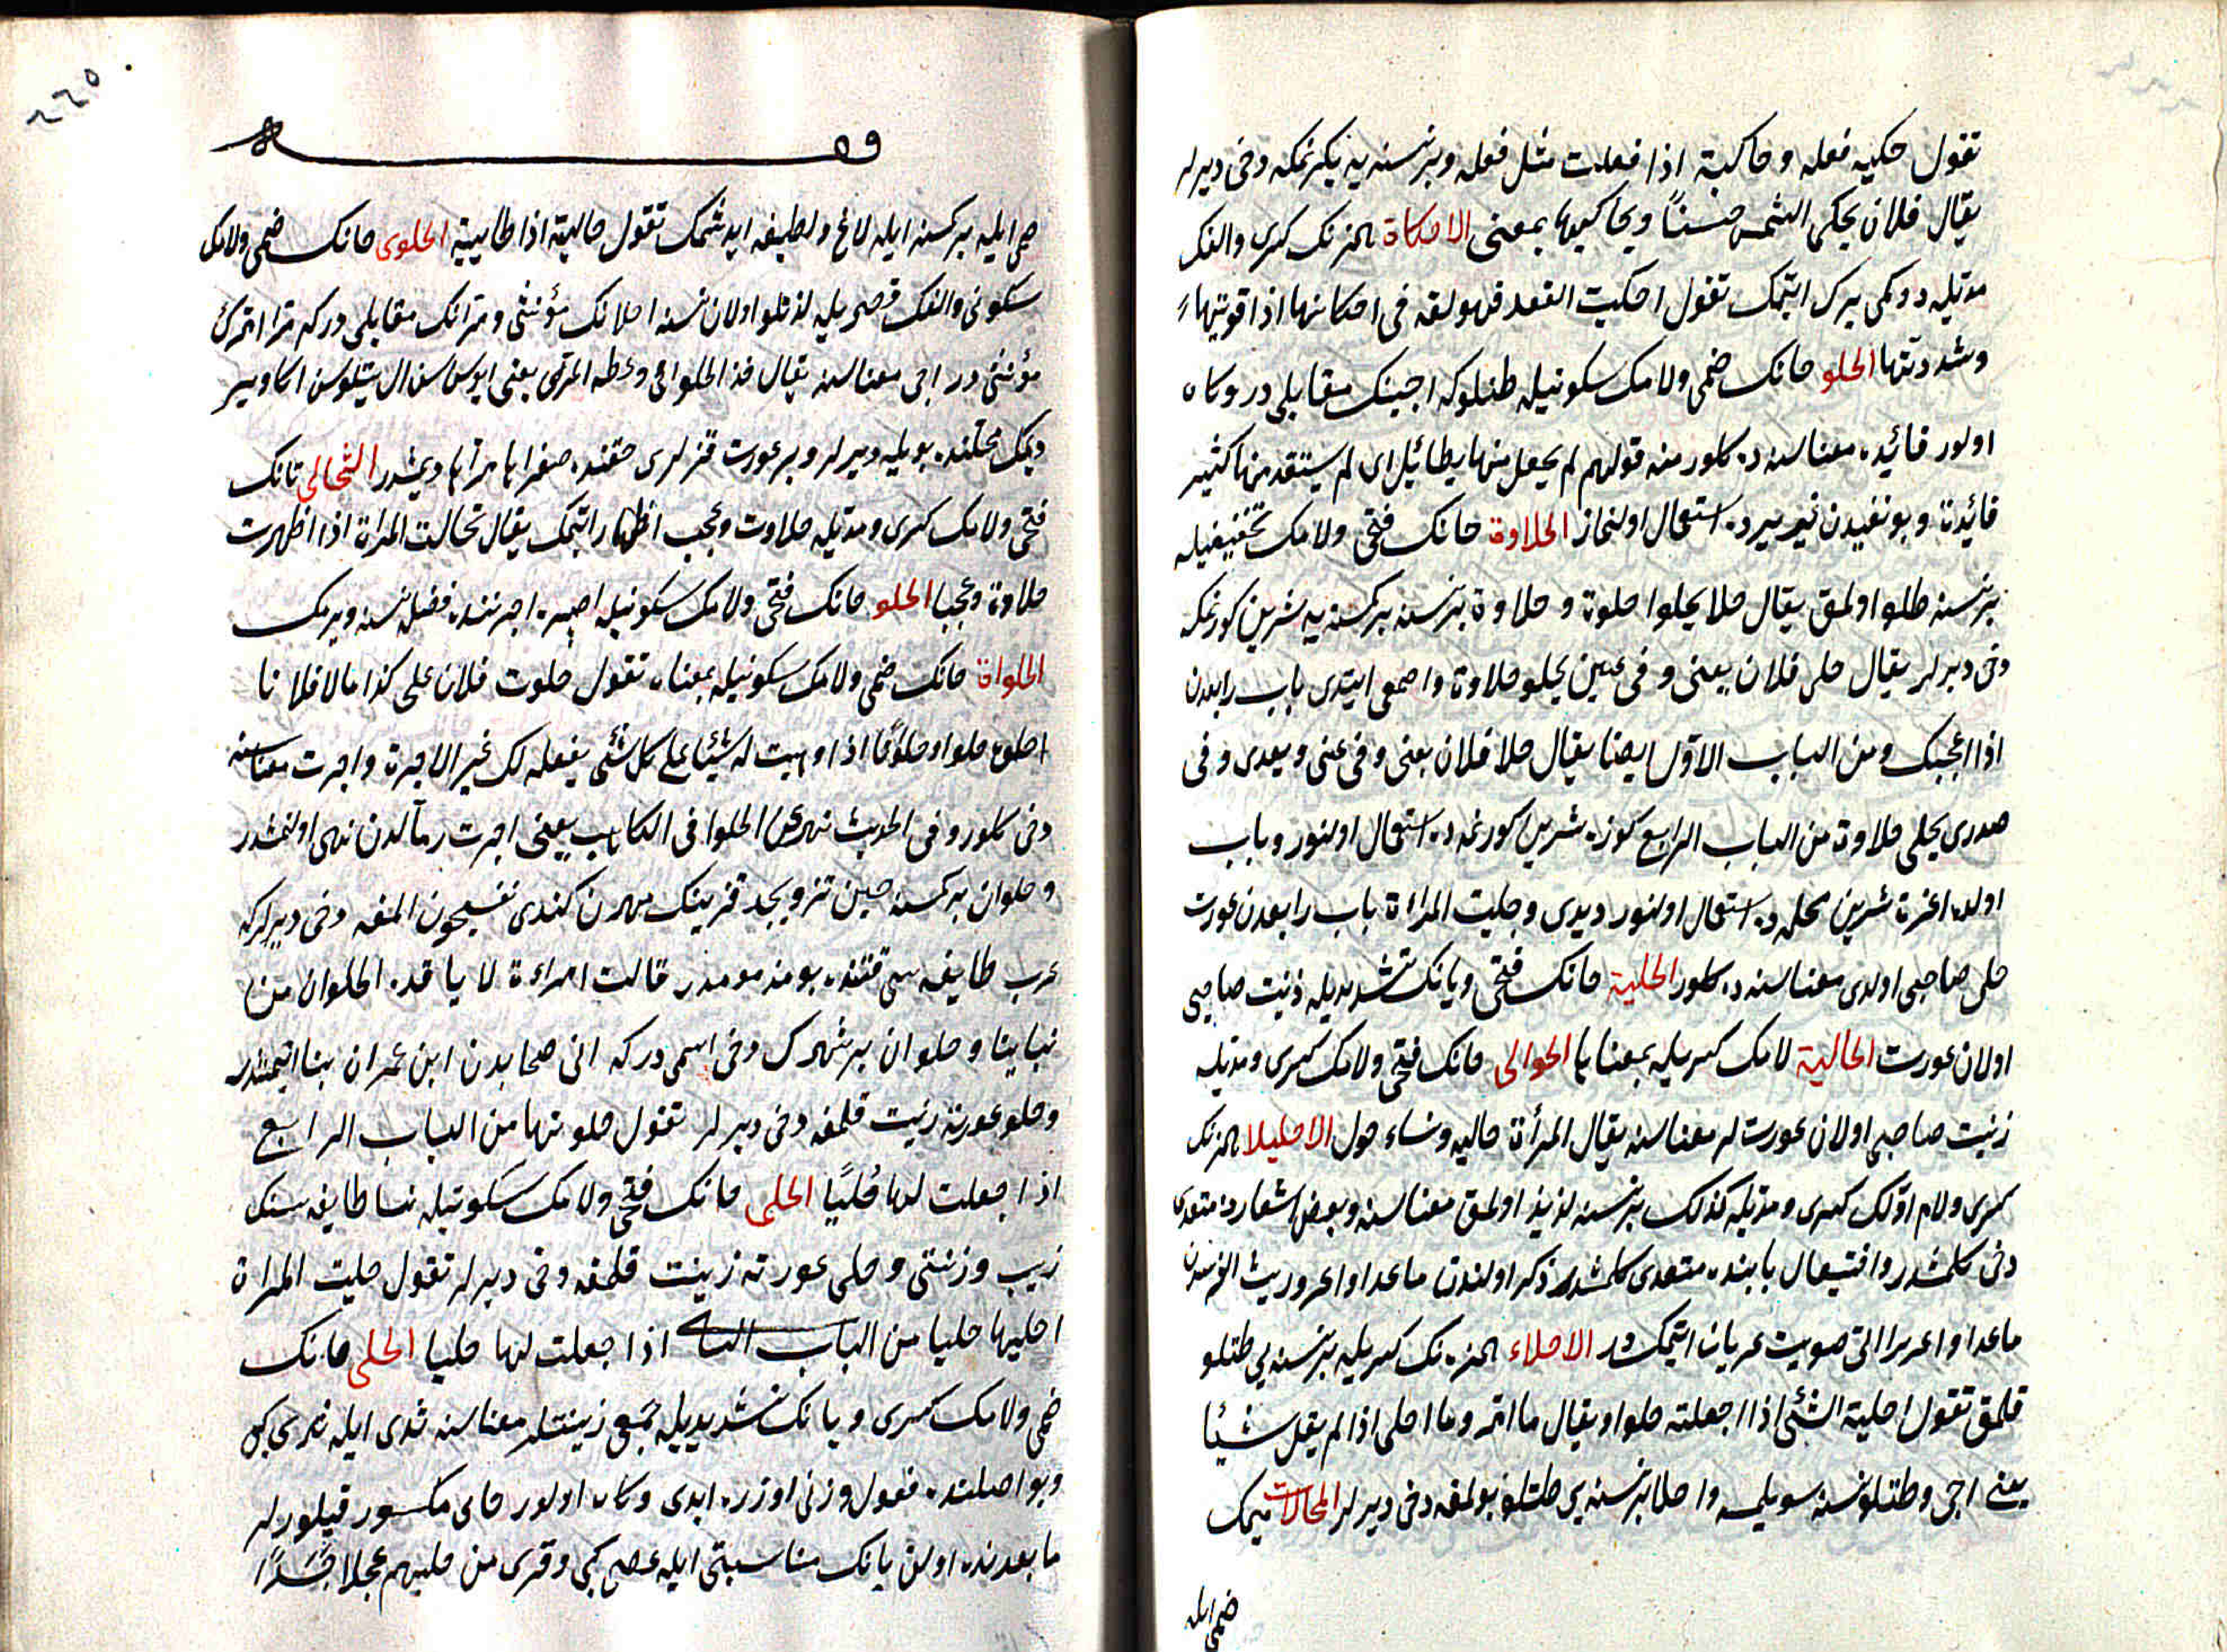 تقول حكيه فعله و حاكيته اذا فعلت مثل فعله و بر نسنه يه بكزنمكه دخی ديرلر
يقال فلان يحكى الشمس حسناً و يحاكيها بمعنى الاحكاة همزنك كسرى والفك
مديله دوكمى برك ايتمك تقول احكيت العقد فهو لغة فى احكائها اذا قويتها
وشددتها الحلو حانك ضمى ولامك سكونيله طتلوكه اجينك مقابلى در وكاه
اولور فائيده معناسنه ده كلور منه قولهم لم يحل منها بطائل اى لم يستفد منها كثير
فائيدة و بو نفيدن غير يرده استعمال اولنماز الحلاوة حانك فتحى ولامك تخفيفيله
بر نسنه طلو اولمق يقال حلا يحلوا حلوة و حلاوة بر نسنه بر كسنه يه شرين كورنمكه
دخی ديرلر يقال حلى فلان بعينى و فى عينى يحلو حلاوة واصمعى ايتدى باب رابعدن
اذا اعجبك ومن الباب الاوّل ايضا يقال حلا فلان بعينى و فى عينى و بعدى و فى
صدرى يحلى حلاوة من الباب الرابع كوزه شرين كورنمه ده استعمال اولنور و باب
اولده اغزه شرين محلده استعمال اولنور ديدى و حليت المراءة باب رابعدن عورت
حلى صاحبى اولدى معناسنه ده كلور الحلية حانك فتحى ويانك تشديديله زينت صاحبى
اولان عورت الحالية لامك كسريله بمعناها الحوالى حانك فتحى ولامك كسرى و مديله
زينت صاحبى اولان عورتلر معناسنه يقال المرأة حاليه ونساء حول الاحليلا همزنك
كسرى ولام اوّلك كسرى ومديله كذلك بر نسنه لذيذ اولمق معناسنه و بعض اشعارده متعدى
دخی كلمشدر و افتيعال بابنده متعدى كلمشدر ذكر اولندن ماعدا و اعروريت الفرسدن
ماعدا و اعريرا التى صويت عريان ايتمكدر الاحلاء همزه نك كسريله بر نسنه يى طتلو
قلمق تقول احلية الشئى اذا جعلته حلوا و يقال ما امر وما احلى اذا لم يقل شيئا
يعنى اجى و طتلو نسنه سويلمه و احلا بر نسنه يى طتلو بولمغه دخی ديرلر المحالات ميمك
ضمى ايله
٢٢٥
وه
ضمى ايله بر كسنه ايله لاغ و لطيفه ايدشمك تقول حاليته اذا طايبته الحلوى حانك ضمى ولامك
سكونى والفك قصريله لذتلو اولان نسنه احلانك مؤنثى و مرّانك مقابلى در كه مرّا امرّك
مؤنثى در اجى معناسنه يقال خذ الحلواى واعطه المرّى يعنى
ديمك محلنده بويله ديرلر و بر عورت قزلرى حقنده صغراها مرّاها ديمشدر التحالى تانك
فتحى ولامك كسرى و مديله حلاوت و عجب اظهار ايتمك يقال تحالت المراة اذا اظهرت
حلاوة وعجبا الحلو حانك فتحى ولامك سكونيله اجيره اجرتنده فضله نسنه ويرمك
الحلوان حانك ضمى ولامك سكونيله بمعناه تقول حلوت فلان على كذا مالا فلانا
احلوه حلوا و حلوانا اذا وهبت له شيئا على كل شئى يفعله لك غير الاجرة و اجرت معناسنه
دخی كلور وفى الحديث نهى عن الحلوان الكاهن يعنى اجرت رمّالدن نهى اولنمشدر
و حلوان بر كسنه حين تزويجده قزينك مهرن كندى نفسيچون المغه دخی ديرلركه
عرب طايفه سى قتنده بو مذمومدر قالت امراءة لا ياخذ الحلوان من
بناتنا و حلوان بر شهرك دخی اسمى دركه انى صحابه دن ابن عمران بنا ايتمشدر
و حلو عورته زينت قلمغه دخی ديرلر تقول حلوتها من الباب الرابع
اذا جعلت لها حُليًا الحلى حانك فتحى ولامك سكونيله نسا طايفه سنك
زيب و زينتى و حلى عورته زينت قلمغه دخی ديرلر تقول حليت المراة
احليها حليا من الباب الثا اذا جعلت لها حليا الحلى حانك
ضمى ولامك كسرى و يانك تشديديله جمعى زينتلر معناسنه ثدى ايله ثدى كبى
و بو اصلنده فعول وزنى اوزره ايدى وكاه اولور حاى مكسور قيلورلر
ما بعدنده اولان يانك مناسبتى ايله عصى كبى و قرى من حليهم عجلا جسدًا